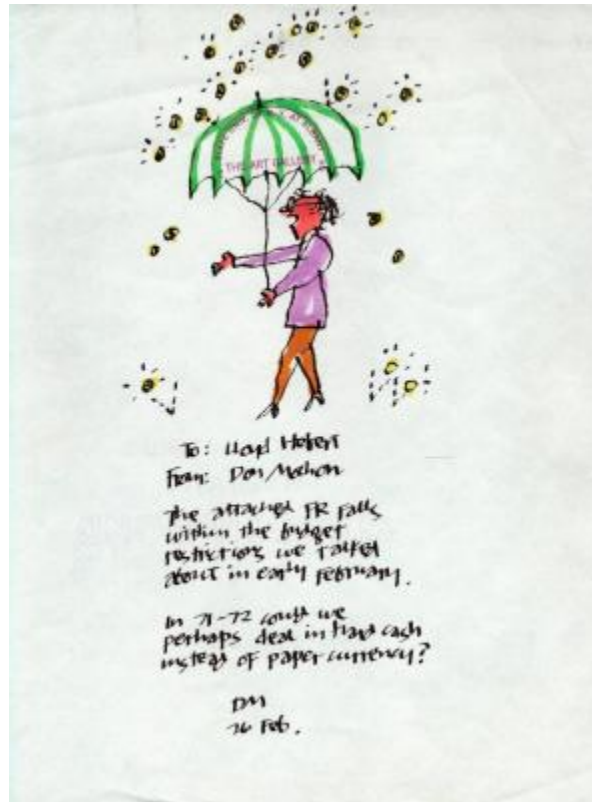 THE ART GALLERY
To: Lloyd Hebert
From: Don Mochon
The attached PR falls
within the budget
restrictions we talked
about in early February.
In 71-72 could we
perhaps deal in hard cash
instead of paper currency?
DM
26 Feb.